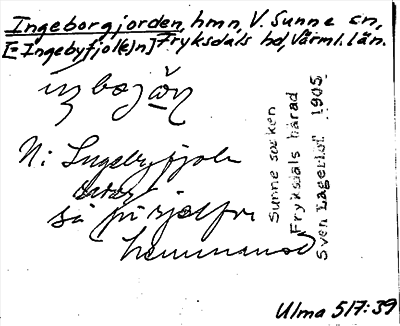 Ingeborgjorden, hmn, V. Sunne sn,
[= Ingebyfjol(e)n] Fryksdals hd, Värml. län.
N: Ingebyfjole
så på själfva
hemmanet
Sunne socken
Fryksdals härad
Sven Lagerlöf 1905
Ulma 517:39